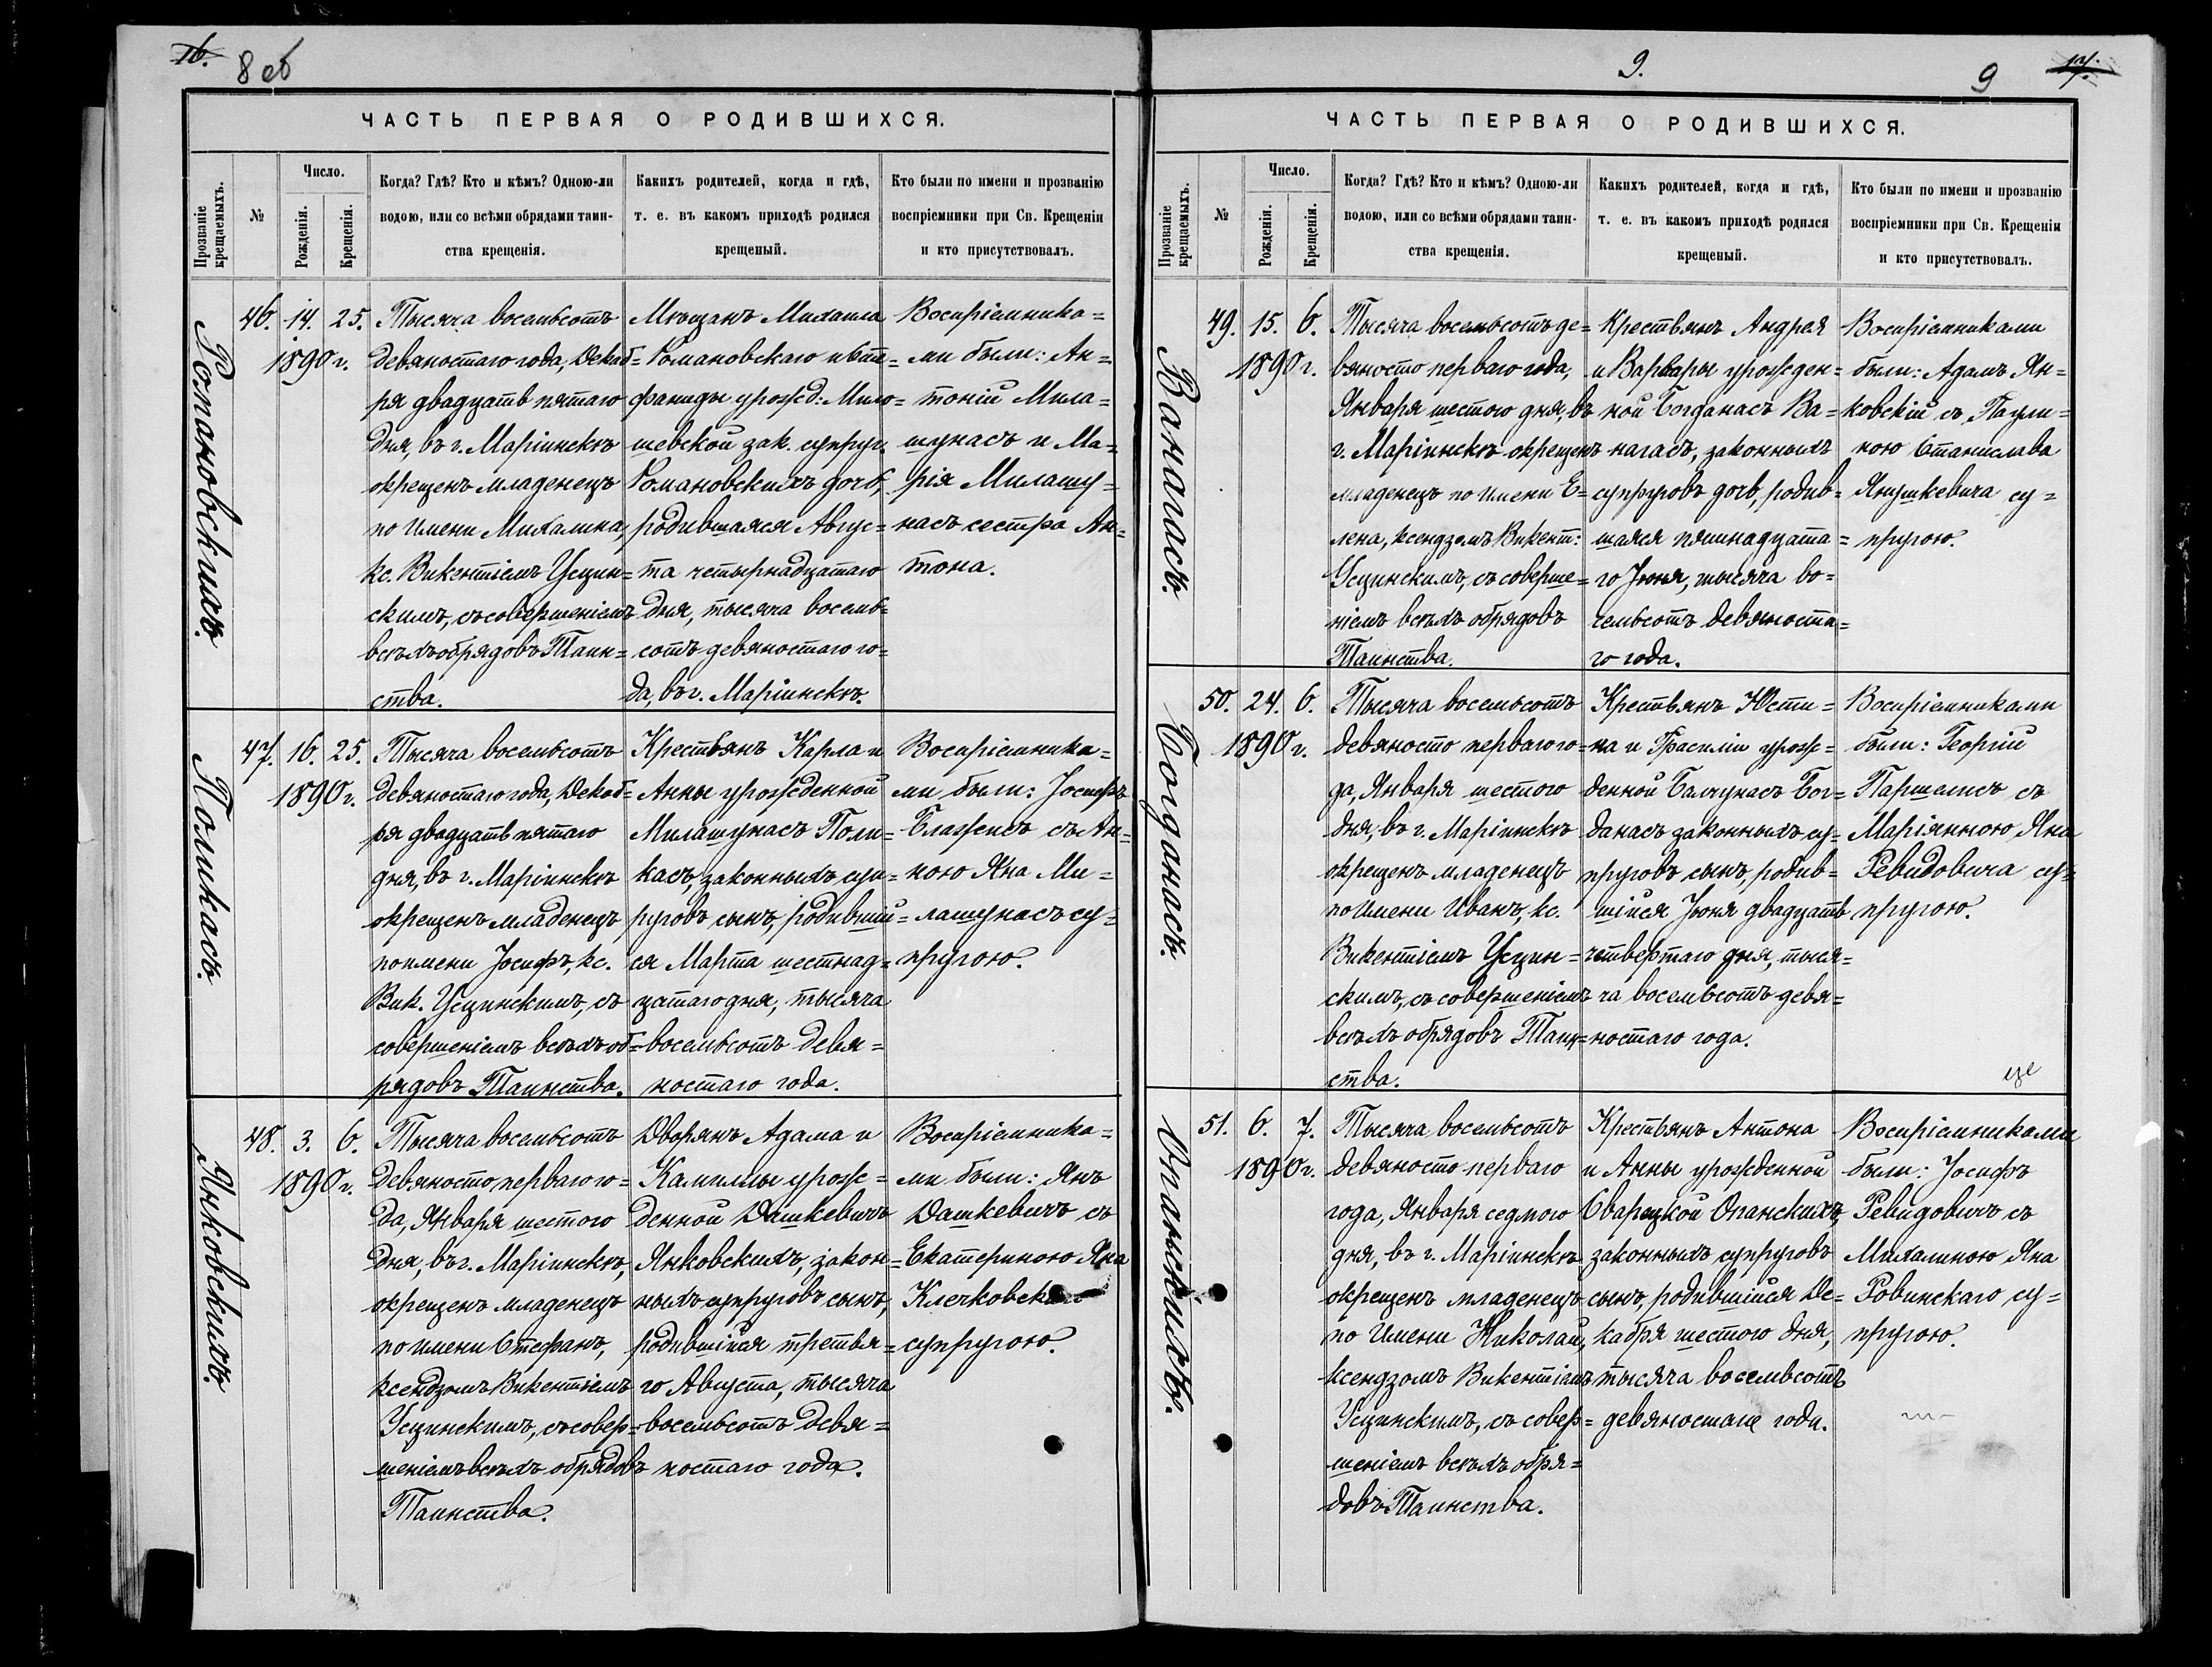 16.
8 об
ЧАСТЬ ПЕРВАЯ О РОДИВШИХСЯ.
Прозваніе крещаемыхъ.
№
Число.
Рожденія.
Крещенія.
Когда? Гдѣ? Кто и кѣмъ? Одною-ли
водою, или со всѣми обрядами таин-
ства крещенія.
Какихъ родителей, когда и гдѣ,
т. е. въ какомъ приходѣ родился
крещеный.
Кто были по имени и прозванію
воспріемники при Св. Крещеніи
и кто присутствовалъ.
Романовскихъ.
46. 14. 25.
1890 г.
Тысяча восемьсотъ
девяностаго года, Декаб=
ря двадцать пятаго
дня, въ г. Маріинскѣ
окрещенъ младенецъ
по имени Михалина,
кс. Викентіемъ Усцин=
скимъ, съ совершеніемъ
всѣхъ обрядовъ Таин=
ства.
Мѣщанъ Михаила
Романовскаго и Сте=
фаниды урожд: Мило=
шевской зак. супруг.
Романовскихъ дочь,
родившаяся Авгус=
та четырнадцатаго
дня, тысяча восемь=
сотъ девяностаго го=
да, въ г. Маріинскѣ.
Воспріемника=
ми были: Ан=
тоній Мила=
шунасъ и Ма=
рія Милашу=
насъ сестра Ан=
тона.
Поликасъ.
47. 16. 25.
1890 г.
Тысяча восемьсотъ
девяностаго года, Декаб=
ря двадцать пятаго
дня, въ г. Маріинскѣ
окрещенъ младенецъ
по имени Іосифъ, кс.
Вик. Усцинскимъ, съ
совершеніемъ всѣхъ об=
рядовъ Таинства.
Крестьянъ Карла и
Анны урожденной
Милашунасъ Поли=
касъ, законныхъ суп=
руговъ сынъ, родившій=
ся Марта шестнад=
цатаго дня, тысяча
восемьсотъ девя=
ностаго года.
Воспріемника=
ми были: Іосифъ
Блажисъ съ Ан=
ною Яна Ми=
лашунасъ су=
пругою.
Янковскихъ.
48. 3. 6.
1890 г.
Тысяча восемьсотъ
девяносто перваго го=
да, Января шестого
дня, въ г. Маріинскѣ,
окрещенъ младенецъ
по имени Стефанъ,
ксендзомъ Викентіемъ
Усцинскимъ, съ совер=
шеніемъ всѣхъ обрядовъ
Таинства.
Дворянъ Адама и
Камиллы урож=
денной Дашкевичъ
Янковскихъ, закон=
ныхъ супруговъ сынъ,
родившійся третья=
го Августа, тысяча
восемьсотъ девя=
ностаго года.
Воспріемника=
ми были: Янъ
Дашкевичъ съ
Екатериною Яна
Клечковскаго
супругою.
9.
9
17.
ЧАСТЬ ПЕРВАЯ О РОДИВШИХСЯ.
Прозваніе крещаемыхъ.
№
Число.
Рожденія.
Крещенія.
Когда? Гдѣ? Кто и кѣмъ? Одною-ли
водою, или со всѣми обрядами таин-
ства крещенія.
Какихъ родителей, когда и гдѣ,
т. е. въ какомъ приходѣ родился
крещеный.
Кто были по имени и прозванію
воспріемники при Св. Крещеніи
и кто присутствовалъ.
Ванагасъ.
49. 15. 6.
1890 г.
Тысяча восемьсотъ де=
вяносто перваго года,
Января шестого дня, въ
г. Маріинскѣ окрещенъ
младенецъ по имени Е=
лена, ксендзомъ Викент:
Усцинскимъ, съ соверше=
ніемъ всѣхъ обрядовъ
Таинства.
Крестьянъ Андрея
и Варвары урожден=
ной Богданасъ Ва=
нагасъ, законныхъ
супруговъ дочь, родив=
шаяся пятнадцата=
го Іюня, тысяча во=
семьсотъ девяноста=
го года.
Воспріемниками
были: Адамъ Ян=
ковскій съ Паули=
ною Станислава
Янушкевича су=
пругою.
Богданасъ.
50. 24. 6.
1890 г.
Тысяча восемьсотъ
девяносто перваго го=
да, Января шестого
дня, въ г. Маріинскѣ
окрещенъ младенецъ
по имени Иванъ, кс.
Викентіемъ Усцин=
скимъ, съ совершеніемъ
всѣхъ обрядовъ Таин=
ства.
Крестьянъ Юсти=
на и Фрасиліи урож=
денной Балчунасъ Бог=
данасъ законныхъ су=
пруговъ сынъ, родив=
шійся Іюня двадцать
четвертаго дня, тыся=
ча восемьсотъ девя=
ностаго года.
Воспріемниками
были: Георгій
Паршелисъ съ
Маріянною Яна
Ревидовича су=
пругою.
Опанскихъ.
51. 6. 7.
1890 г.
Тысяча восемьсотъ
девяносто перваго
года, Января седмого
дня, въ г. Маріинскѣ
окрещенъ младенецъ
по имени Николай,
ксендзомъ Викентіемъ
Усцинскимъ, съ совер=
шеніемъ всѣхъ обря=
довъ Таинства.
Крестьянъ Антона
и Анны урожденной
Сварецкой Опанскихъ,
законныхъ супруговъ
сынъ, родившійся Де=
кабря шестого дня,
тысяча восемьсотъ
девяностаго года.
Воспріемниками
были: Іосифъ
Ревидовичъ съ
Михалиною Яна
Ровинскаго су=
пругою.